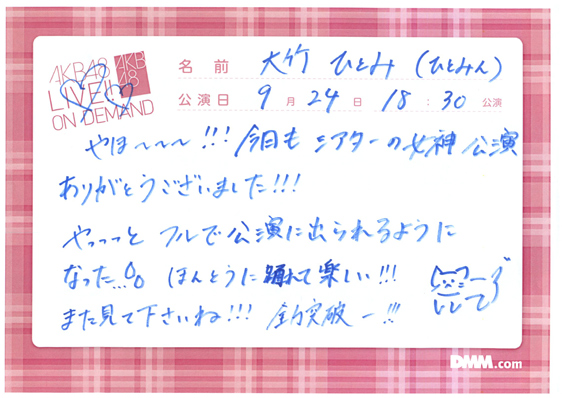 AKB48
LIVE!!
ON DEMAND
AKB
48
名前 大竹 ひとみ (ひとみん)
公演日 9月24日 18:30公演
やほ〜〜〜!!! 今日も シアターの女神 公演
ありがとうございました!!!
やっっっと フルで公演に出られるように
なった... ほんとうに 踊れて楽しい!!!
また見て下さいね!!! 全力突破ー!!!
DMM.com